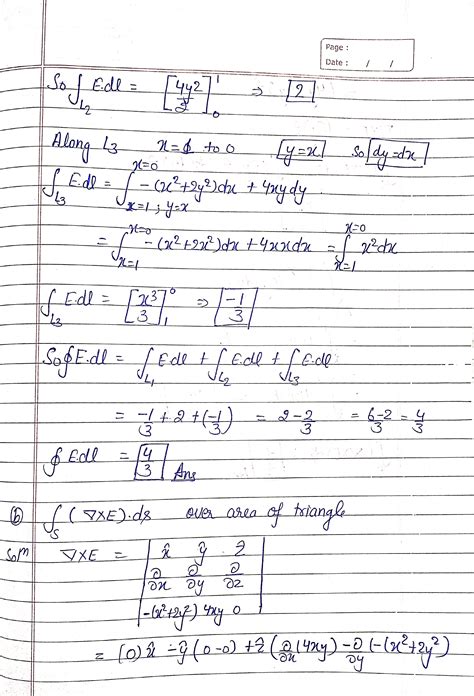 Page :
Date : / /
So ∫L2 E.dl = [4y²/2]₀¹ ⇒ [2]
Along L3 x=1 to 0 [y=x] So [dy=dx]
∫L3 E.dl = ∫_{x=1; y=x}^{x=0} -(x²+2y²)dx + 4xydy
= ∫_{x=1}^{x=0} -(x²+2x²)dx + 4xxdx = ∫_{x=1}^{x=0} x²dx
∫L3 E.dl = [x³/3]₁⁰ ⇒ [-1/3]
So ∮E.dl = ∫L1 E.dl + ∫L2 E.dl + ∫L3 E.dl
= -1/3 + 2 + (-1/3) = 2-2/3 = 6-2/3 = 4/3
∮ E.dl = [4/3] Ans
(b) ∫S (∇×E).ds over area of triangle
Soln ∇×E = | x̂ ŷ ẑ
∂/∂x ∂/∂y ∂/∂z
-(x²+2y²) 4xy 0 |
= (0)x̂ - ŷ(0-0) + ẑ(∂/∂x(4xy) - ∂/∂y(-(x²+2y²)